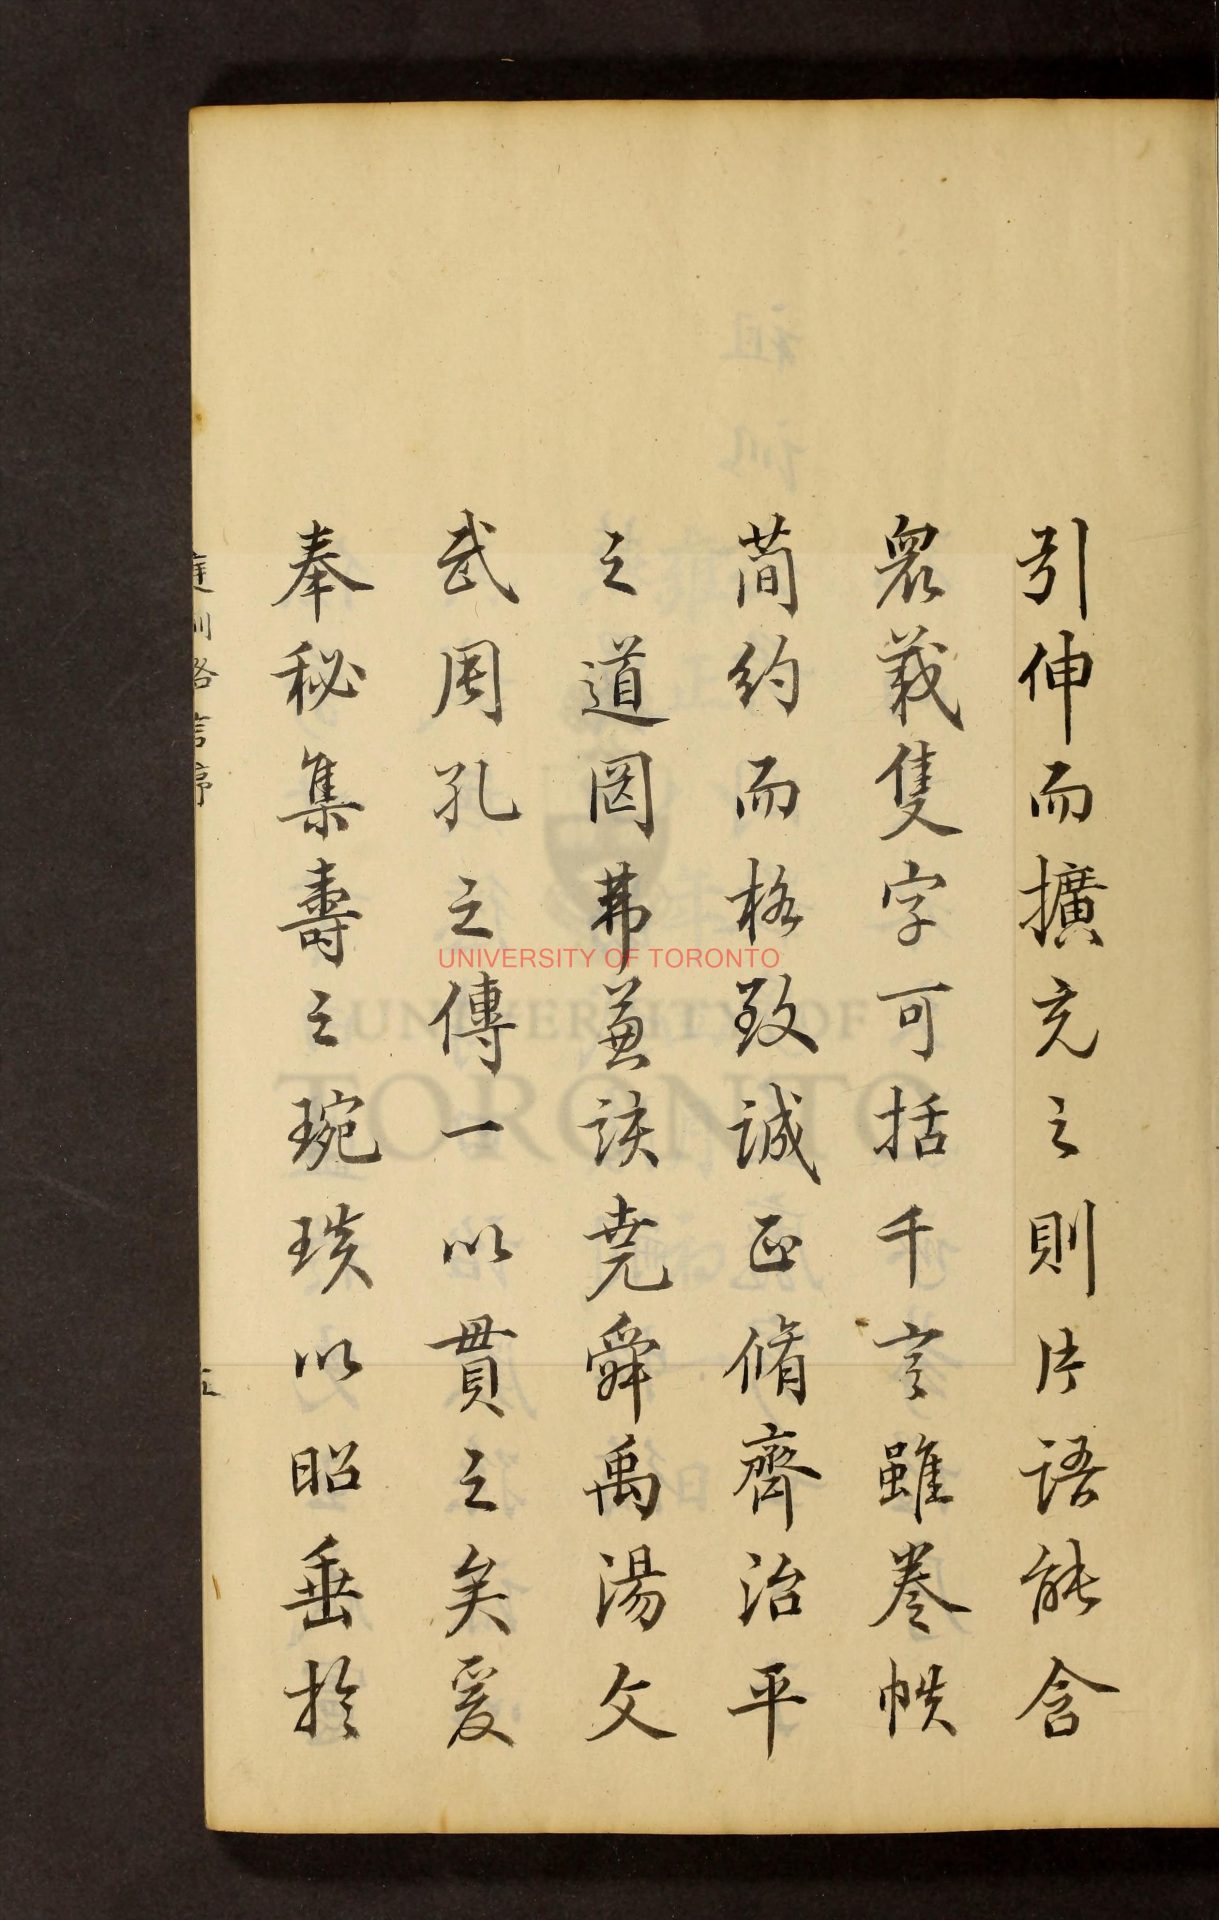 引伸而擴充之則片語能含
衆義隻字可括千言雖卷帙
簡約而格致誠正脩齊治平
之道罔弗兼該堯舜禹湯文
武周孔之傳一以貫之矣爰
奉秘集壽之琬琰以昭垂於
庭訓格言序
五
UNIVERSITY OF TORONTO
UNIVERSITY OF
TORONTO